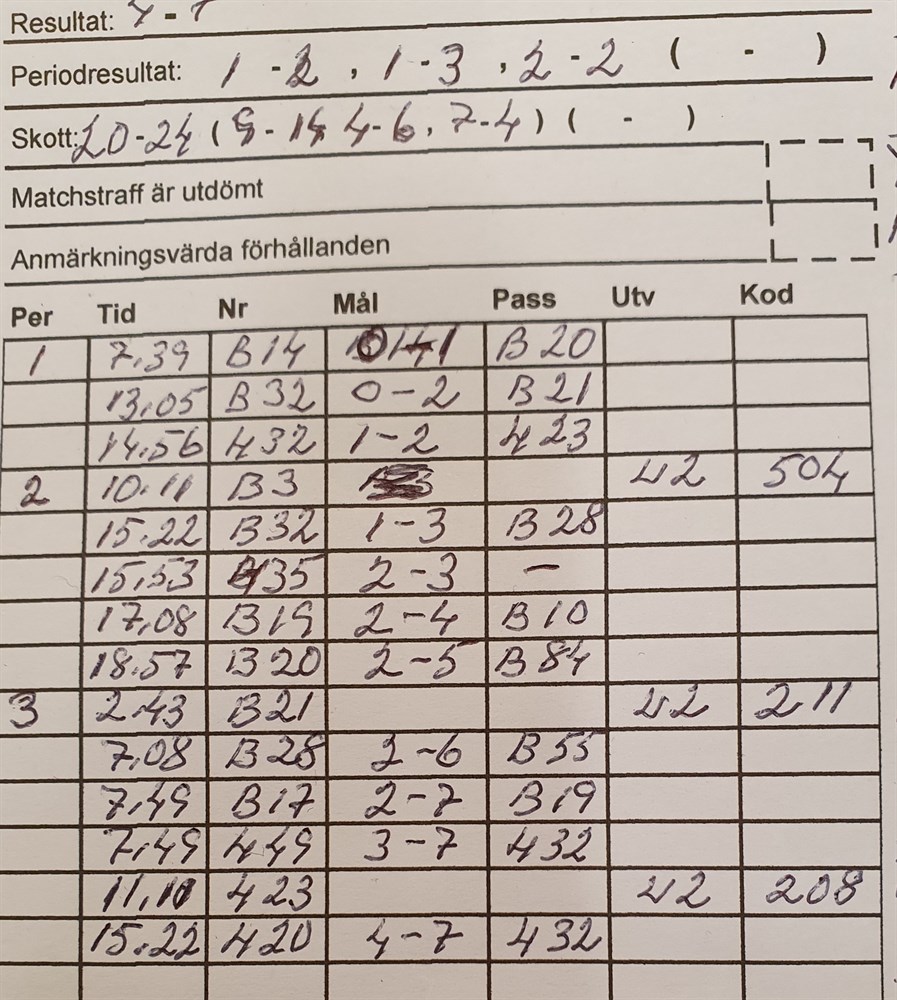 Resultat: 4 - 7
Periodresultat: 1 - 2 , 1 - 3 , 2 - 2 ( - )
Skott: 20-24 (9-14, 4-6, 7-4) ( - )
Matchstraff är utdömt
Anmärkningsvärda förhållanden
Per Tid Nr Mål Pass Utv Kod
1 7.39 B14 0-1 B20
13.05 B32 0-2 B21
14.56 H32 1-2 H23
2 10.11 B3 U2 504
15.22 B32 1-3 B28
15.53 H35 2-3 -
17.08 B19 2-4 B10
18.57 B20 2-5 B84
3 2.43 B21 U2 211
7.08 B28 2-6 B55
7.49 B17 2-7 B19
7.49 H49 3-7 H32
11.10 H23 U2 208
15.22 H20 4-7 H32